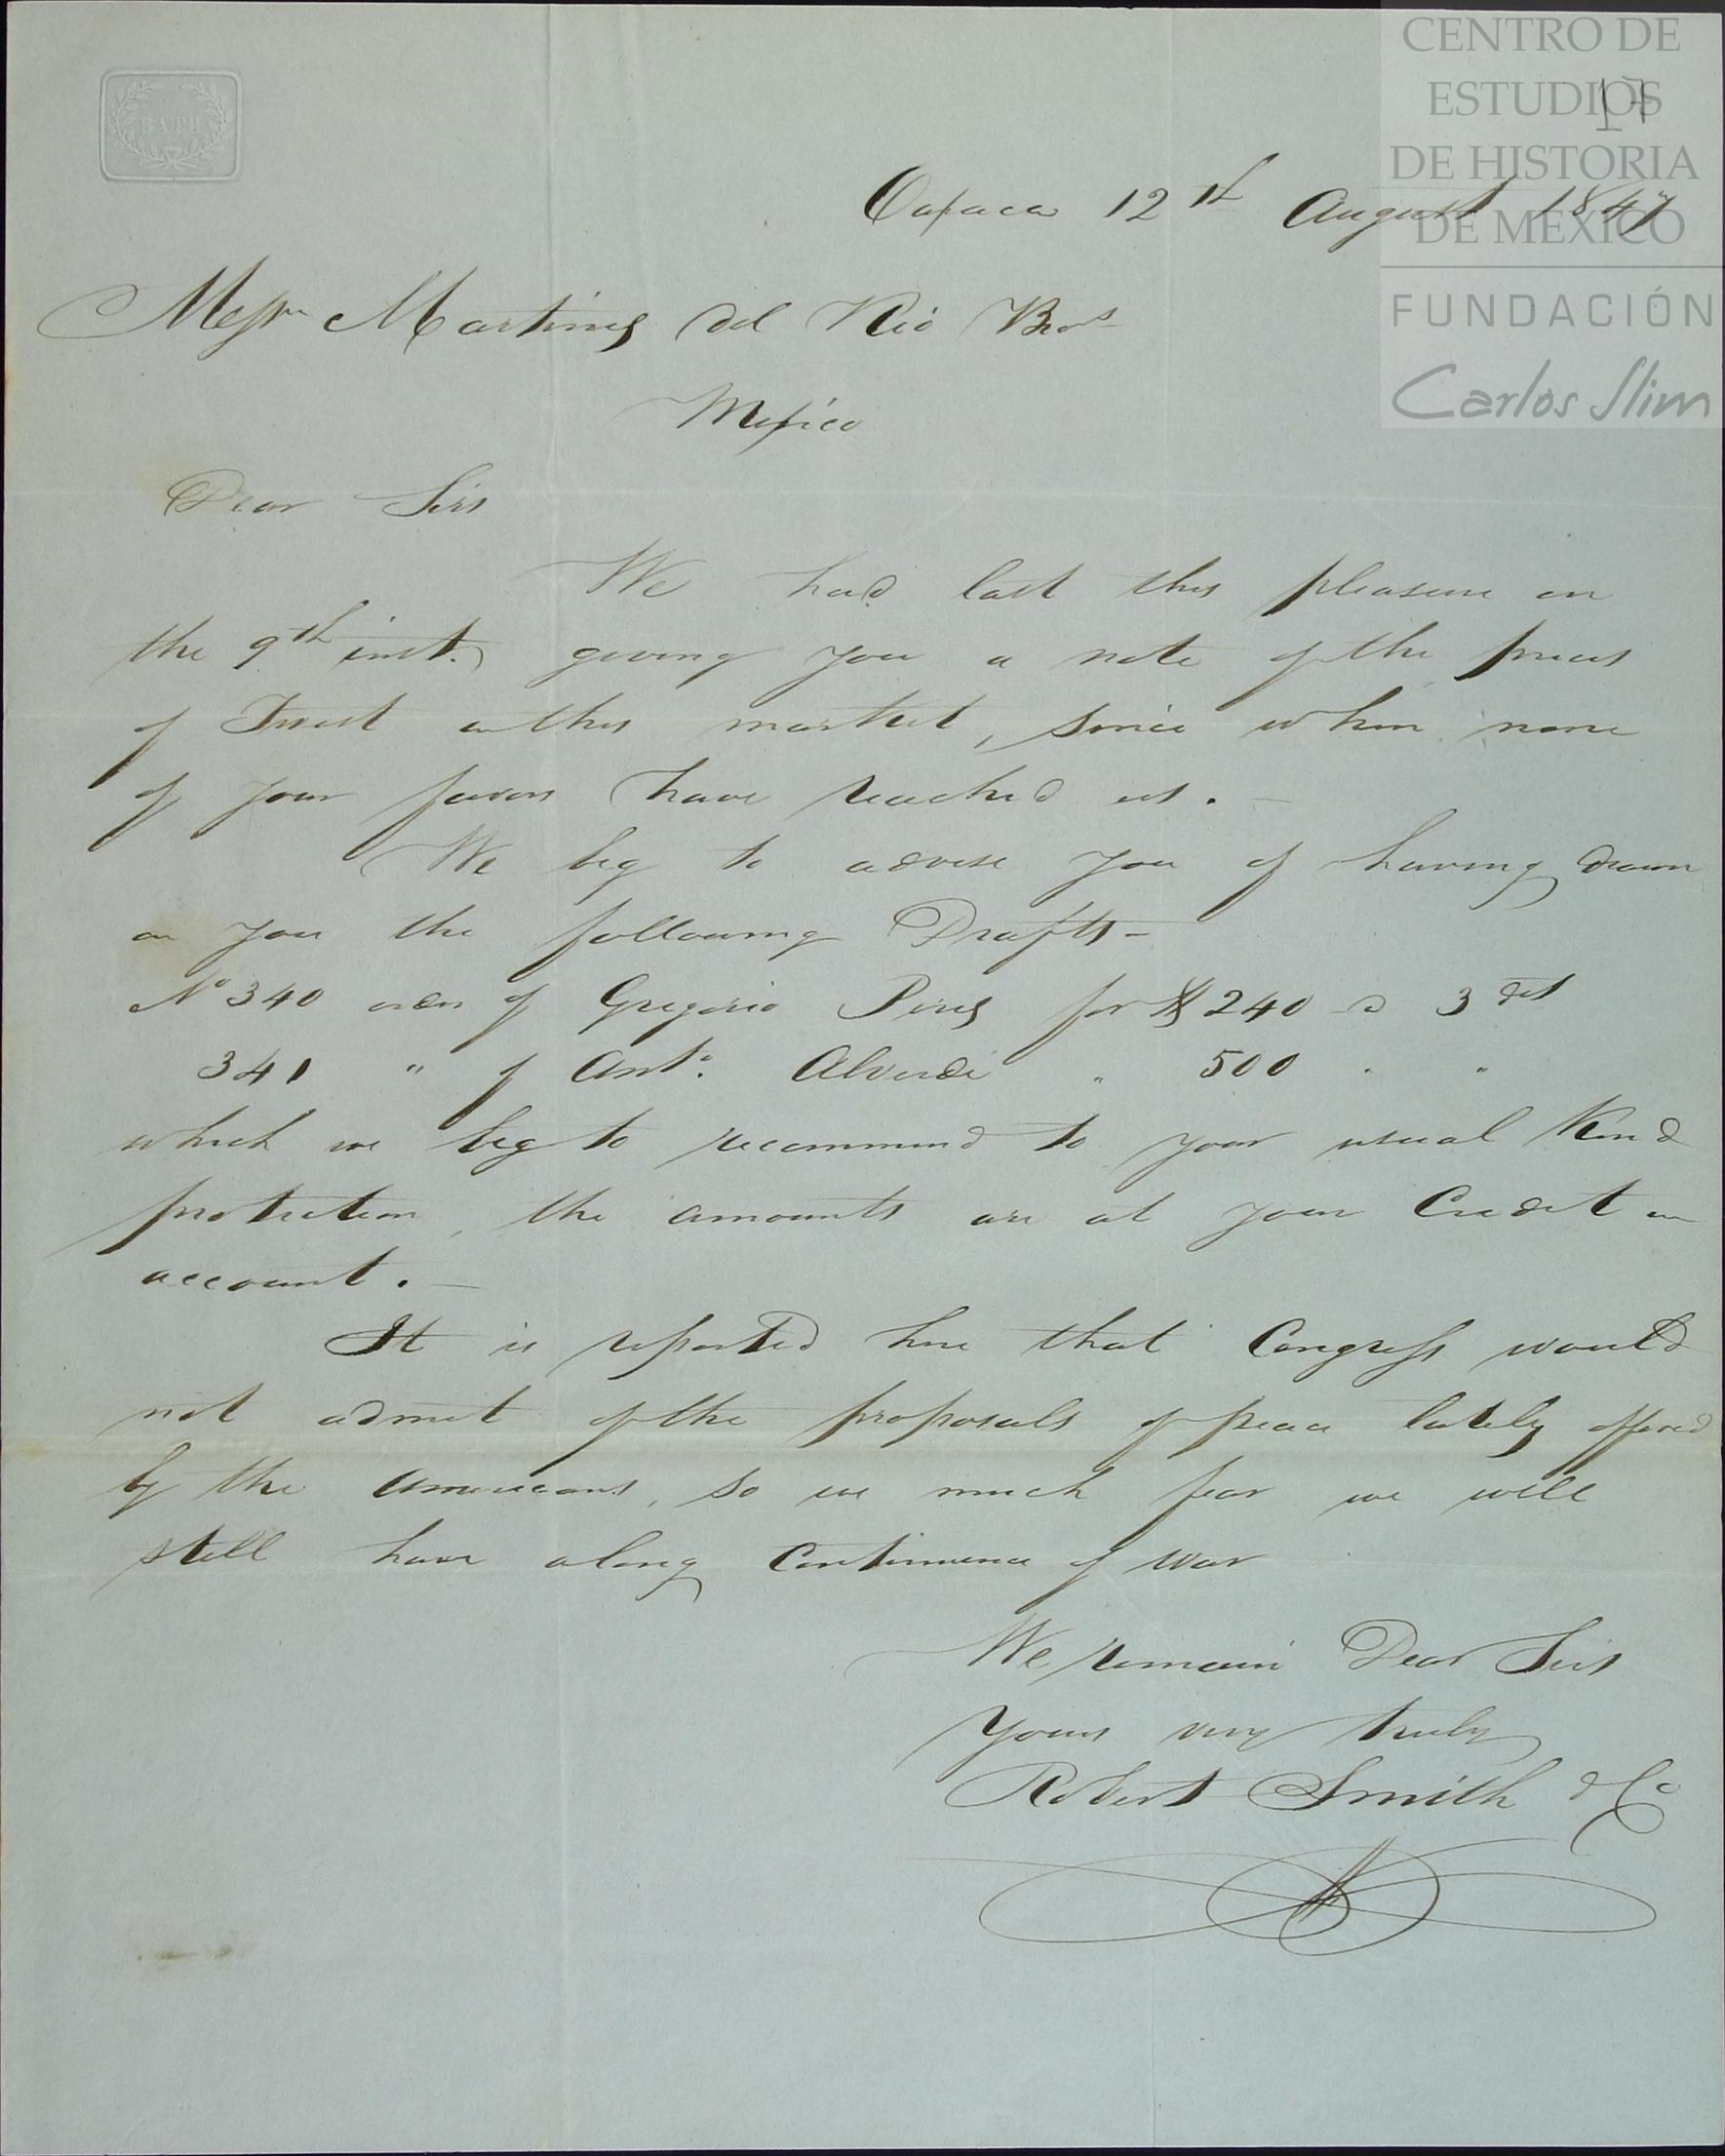 CENTRO DE
ESTUDIOS
DE HISTORIA
DE MEXICO
FUNDACIÓN
Carlos Slim
17
BATH
Oaxaca 12th August 1847
Messrs Martinez del Rio Bros
Mexico
Dear Sirs
We had last this pleasure on
the 9th inst. giving you a note of the prices
of Twist in this market, since when none
of your favors have reached us. —
We beg to advise you of having drawn
on you the following Drafts —
No 340 order of Gregorio Perez for $ 240 a 3 d/st
341 " of Anto. Alverdi " 500 " "
which we beg to recommend to your usual Kind
protection, the amounts are at your Credit in
account. —
It is reported here that Congress would
not admit of the proposals of peace lately offered
by the Americans, so we much fear we will
still have along Continuence of war
We remain Dear Sirs
Yours very truly
Robert Smith & Co